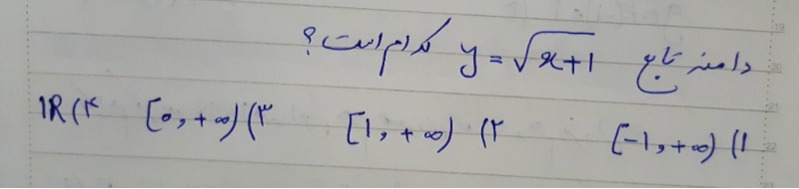 دامنه تابع y = √x+1 کدام است؟
۱) [-1, +∞) ۲) [1, +∞) ۳) [0, +∞) ۴) IR